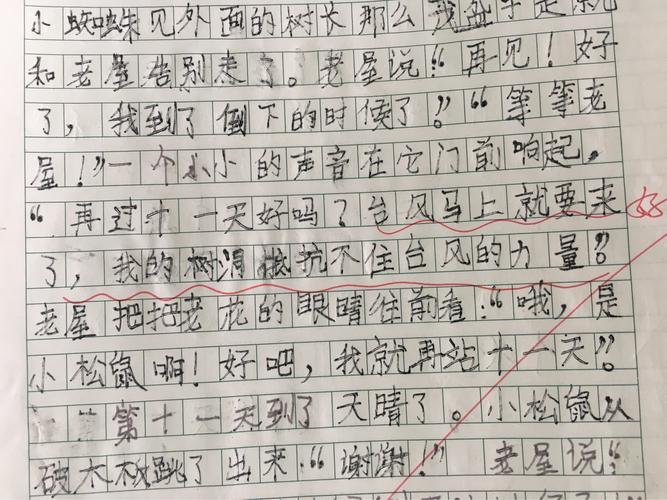 小蜘蛛见外面的树长那么茂盛于是就
和老屋告别走了。老屋说:“再见!好
了,我到了倒下的时候了!”“等等老
屋!”一个小小的声音在它门前响起。
“再过十一天好吗?台风马上就要来
了,我的树洞抵抗不住台风的力量?”
老屋把把老花的眼睛往前看:“哦,是
小松鼠啊!好吧,我就再站十一天?”
第十一天到了天晴了。小松鼠从
破木板跳了出来:“谢谢!”老屋说:“